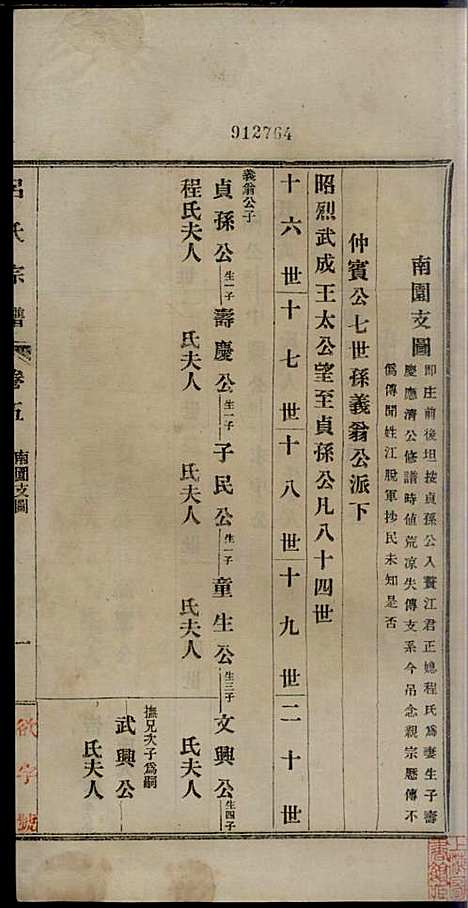 912764
南園支圖
即庄前後坦按貞孫公入贅江君正媳程氏爲妻生子壽
慶應清公修譜時值荒凉失傳支系今吊念親宗懸傳不
僞傳聞姓江脫軍抄民未知是否
仲賓公七世孫義翁公派下
昭烈武成王太公望至貞孫公凡八十四世
十六世 十七世 十八世 十九世 二十世
義翁公子
貞孫公 生一子 壽慶公 生二子 子民公 生一子 童生公 生三子 文興公 生四子
程氏夫人 氏夫人 氏夫人 氏夫人 氏夫人
撫兄次子爲嗣
武興公
氏夫人
呂氏宗譜 卷五 南園支圖 一
欲字號